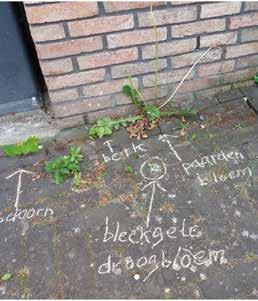 berk
paarden
bloem
sdoorn
bleekgele
droogbloem